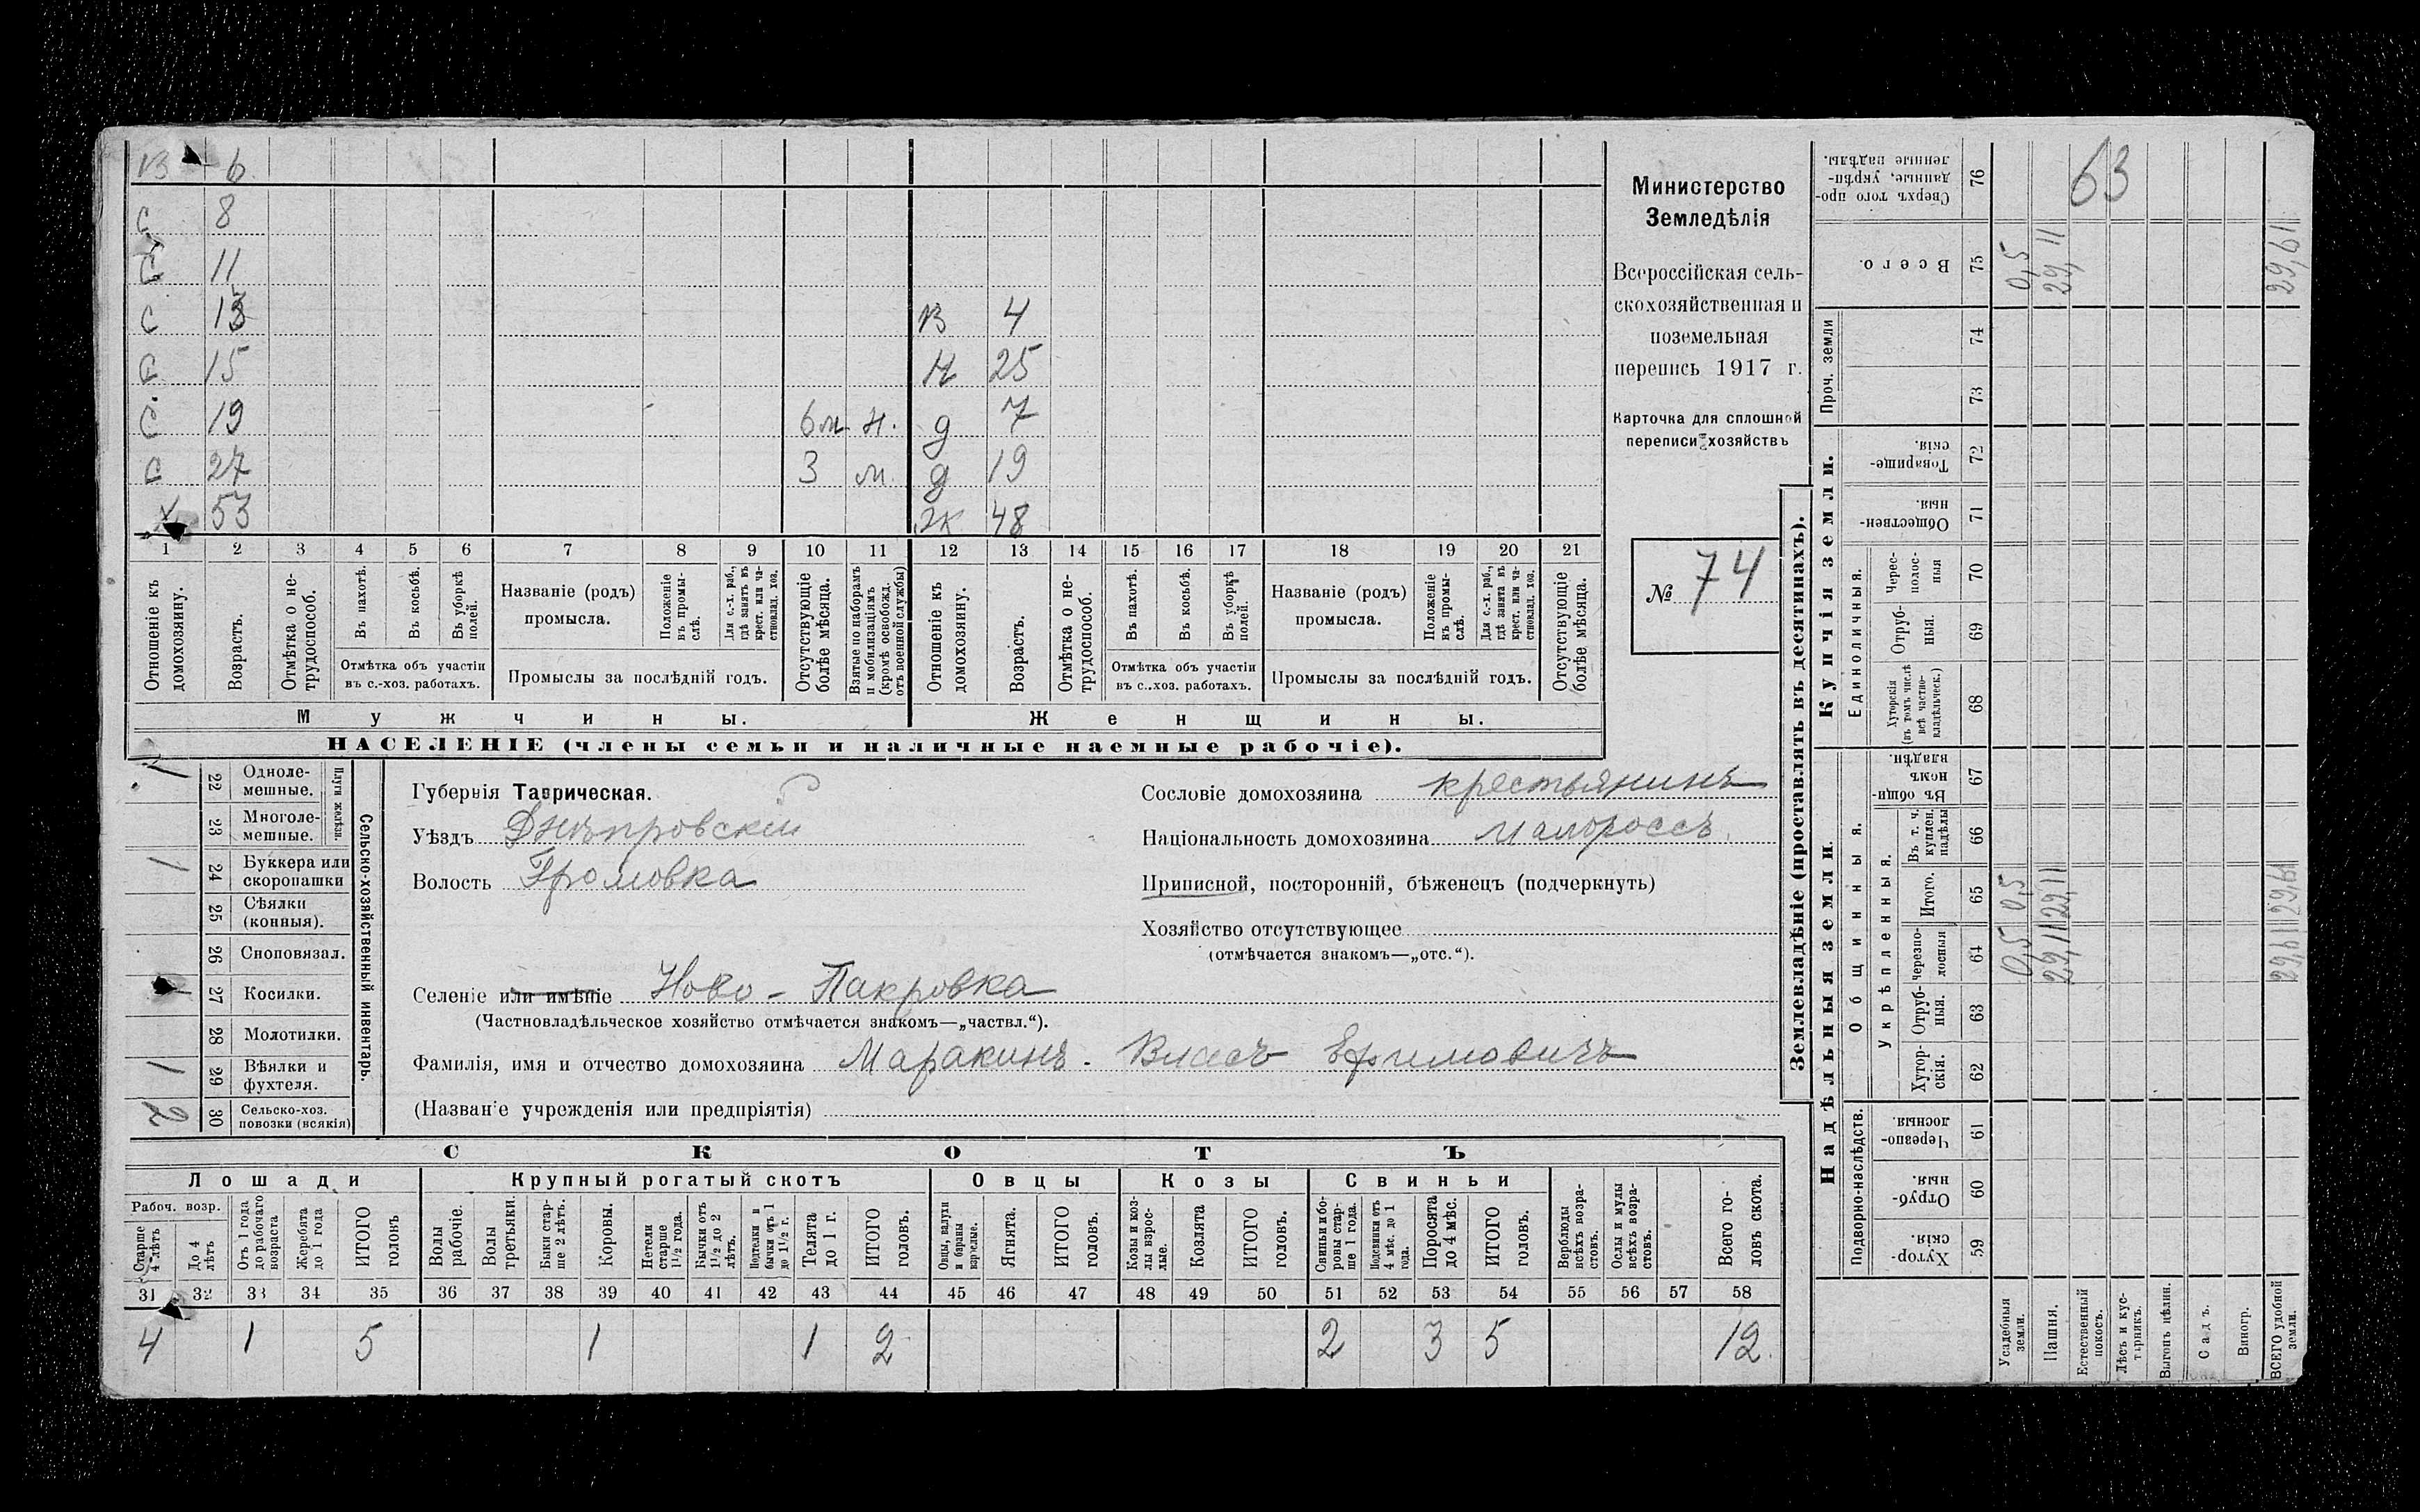 В 6
С 8
С 11
С 13 В 4
С 15 Н 25
С 19 6 м. н. д 7
С 27 3 м. д 19
Х 53 Ж 48
1 2 3 4 5 6 7 8 9 10 11 12 13 14 15 16 17 18 19 20 21
Отношеніе къ домохозяину.
Возрастъ.
Отмѣтка о не-трудоспособ.
Въ пахотѣ.
Въ косьбѣ.
Въ уборкѣ полей.
Отмѣтка объ участіи
въ с.-хоз. работахъ.
Названіе (родъ)
промысла.
Положеніе въ промы-слѣ.
Для с.-х. раб., гдѣ занятъ въ крест. или ча-стновлад. хоз.
Промыслы за послѣдній годъ.
Отсутствующіе болѣе мѣсяца.
Взятые по наборамъ и мобилизаціямъ (кромѣ освобожд. отъ военной службы)
Отношеніе къ домохозяину.
Возрастъ.
Отмѣтка о не-трудоспособ.
Въ пахотѣ.
Въ косьбѣ.
Въ уборкѣ полей.
Отмѣтка объ участіи
въ с.-хоз. работахъ.
Названіе (родъ)
промысла.
Положеніе въ промы-слѣ.
Для с.-х. раб., гдѣ занята въ крест. или ча-стновлад. хоз.
Промыслы за послѣдній годъ.
Отсутствующіе болѣе мѣсяца.
Мужчины.
Женщины.
НАСЕЛЕНІЕ (члены семьи и наличные наемные рабочіе).
Министерство
Земледѣлія
Всероссійская сель-
скохозяйственная и
поземельная
перепись 1917 г.
Карточка для сплошной
переписи хозяйствъ
№ 74
1 22 Одноле-мешные.
23 Многоле-мешные.
Плуги желѣзн.
1 24 Буккера или скоропашки
25 Сѣялки (конныя).
26 Сноповязал.
1 27 Косилки.
28 Молотилки.
1 29 Вѣялки и фухтеля.
2 30 Сельско-хоз. повозки (всякія)
Сельско-хозяйственный инвентарь.
Губернія Таврическая.
Уѣздъ Днѣпровскій
Волость Громовка
Селеніе или имѣніе Ново - Пакровка
(Частновладѣльческое хозяйство отмѣчается знакомъ—„частвл.“).
Фамилія, имя и отчество домохозяина Маракинъ - Власъ Ефимовичъ
(Названіе учрежденія или предпріятія)
Сословіе домохозяина крестьянинъ
Національность домохозяина Малороссъ.
Приписной, посторонній, бѣженецъ (подчеркнуть)
Хозяйство отсутствующее
(отмѣчается знакомъ—„отс.“).
СКОТЪ
Лошади
Крупный рогатый скотъ
Овцы
Козы
Свиньи
Рабоч. возр.
Старше 4 лѣтъ
До 4 лѣтъ
Отъ 1 года до рабочаго возраста
Жеребята до 1 года
ИТОГО головъ
Волы рабочіе.
Волы третьяки.
Быки стар-ше 2 лѣтъ.
Коровы.
Нетели старше 1½ года.
Бычки отъ 1½ до 2 лѣтъ.
Подтелки и бычки отъ 1 до 1½ г.
Телята до 1 г.
ИТОГО головъ.
Овцы, валухи и бараны взрослые.
Ягнята.
ИТОГО головъ.
Козы и коз-лы взрос-лые.
Козлята
ИТОГО головъ.
Свиньи и бо-ровы стар-ше 1 года.
Подсвинки отъ 4 мѣс. до 1 года.
Поросята до 4 мѣс.
ИТОГО головъ.
Верблюды всѣхъ возра-стовъ.
Ослы и мулы всѣхъ возра-стовъ.
Всего го-ловъ скота.
31 32 33 34 35 36 37 38 39 40 41 42 43 44 45 46 47 48 49 50 51 52 53 54 55 56 57 58
4 1 5 1 1 2 2 3 5 12.
Землевладѣніе (проставлять въ десятинахъ).
Надѣльныя земли.
Купчія земли.
Подворно-наслѣдств.
Общинныя.
Укрѣпленныя.
Единоличныя.
Проч. земли
Хутор-скія. 59
Отруб-ныя. 60
Черезпо-лосныя 61
Хутор-скія. 62
Отруб-ныя. 63
Черезпо-лосныя 64
Итого. 65
Въ т. ч. куплен. надѣлы 66
Въ общи-номъ владѣн. 67
Хуторскія (въ томъ числѣ всѣ частно-владѣльческ.) 68
Отруб-ныя. 69
Черес-полос-ныя 70
Обществен-ныя 71
Товарище-скія. 72
73
74
Всего. 75
Сверхъ того про-данные, укрѣп-ленные надѣлы. 76
63
Усадебныя земли. 0,5 0,5 0,5
Пашня. 29,11 29,11 29,11
Естественный покосъ.
Лѣсъ и кус-тарникъ.
Выгонъ цѣлин.
Садъ.
Виногр.
ВСЕГО удобной земли. 29,61 29,61 29,61